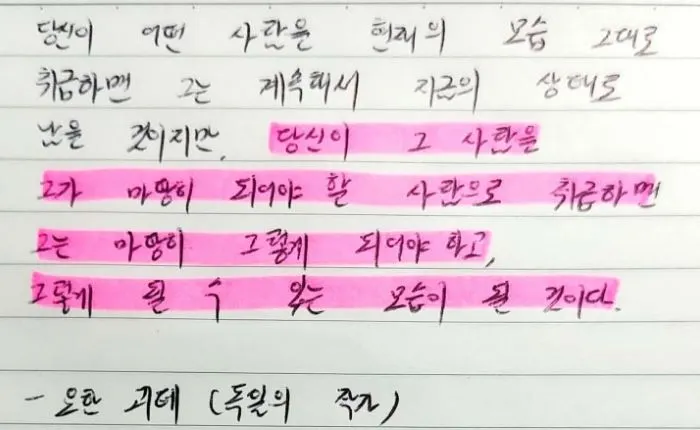 당신이 어떤 사람을 현재의 모습 그대로
취급하면 그는 계속해서 지금의 상태로
남을 것이지만, 당신이 그 사람을
그가 마땅히 되어야 할 사람으로 취급하면
그는 마땅히 그렇게 되어야 하고,
그렇게 될 수 있는 모습이 될 것이다.
- 요한 괴테 (독일의 작가)